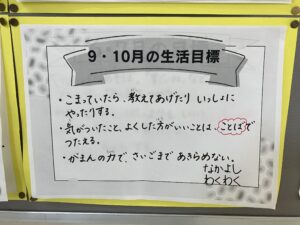 9・10月の生活目標
・こまっていたら、教えてあげたり いっしょに
やったりする。
・気がついたこと、よくした方がいいことは、ことばで
つたえる。
・がまんの力で、さいごまで あきらめない。
なかよし
わくわく